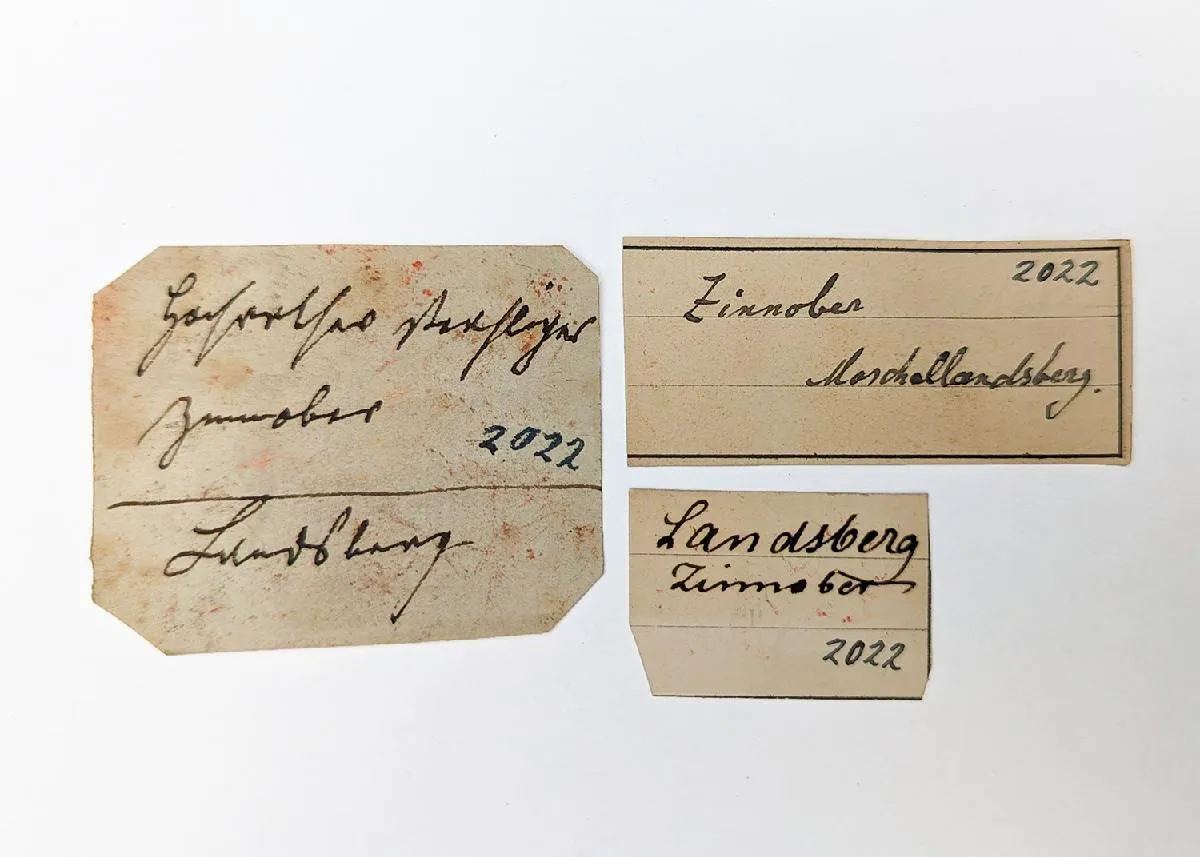 Hochrother strahliger
Zinnober
2022
Landsberg
2022
Zinnober
Moschellandsberg.
Landsberg
Zinnober
2022